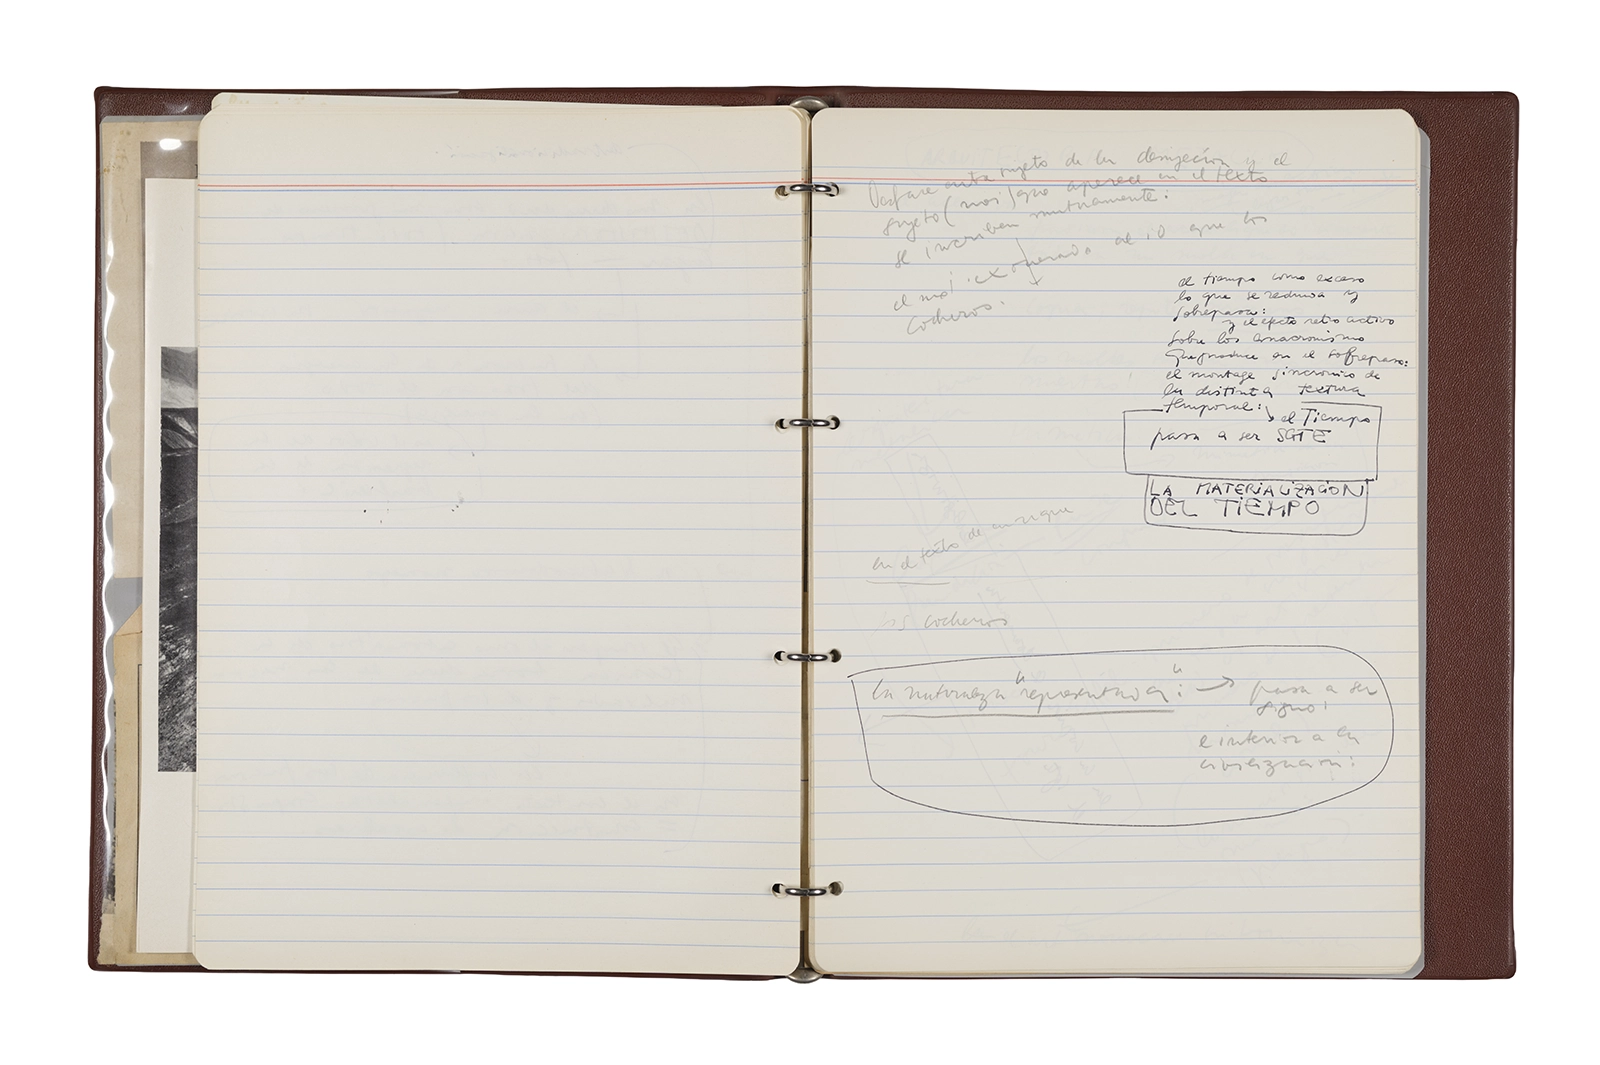 sujeto de la deyección y el
sujeto (moi) que aparece en el texto
se incriben mutuamente:
el moi exonerado al id que los
cocheros.
el tiempo como exceso
lo que se reduce y
sobrepasa:
y el efecto retroactivo
sobre los anacronismo
que produce en el sobrepaso:
el montage sincronico de
la distinta textura
temporal: el Tiempo
pasa a ser SGTE
LA MATERIALIZACION
DEL TIEMPO
en el texto de
los cocheros
la naturaleza "representada": → pasa a ser
signo:
e interior a la
civilización: